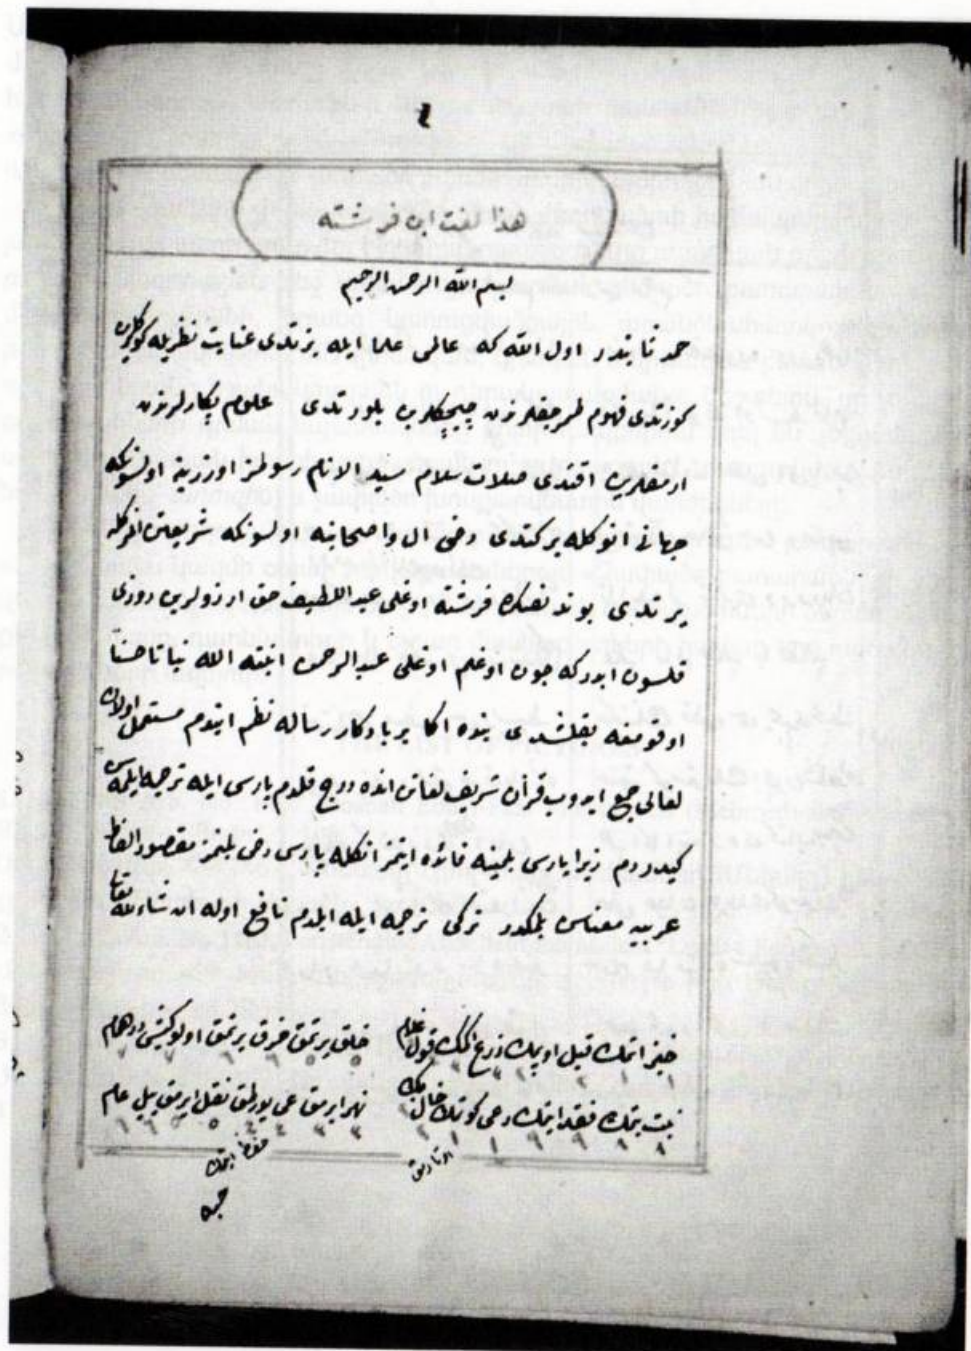 ٤
هذا لغت ابن فرشته
بسم الله الرحمن الرحيم
حمد ثابتدر اول الله كه عالمى علما ايله بزتدى عنايت نظريله كوكلرين
كوزتدى فهوم طمرجقلرندن چيچكلرين بلورتدى علوم بكارلرندن
ارمقلرين اقتدى صلات سلام سيد الانام رسولمز اوزرينه اولسونكه
جهانى انوكله بركتدى دخى ال واصحابنه اولسونكه شريعتن انلركله
برتدى بوندنصكره فرشته اوغلى عبد اللطيف حق ارزولرين روزى
قلسون ايدركه چون اوغلم اوغلى عبد الرحمن انبته الله نباتا حسنا
اوقومغه يقلشدى بنده اكا بر يادكار رساله نظم ايتدم مستعمل اولان
لغالى جمع ايدوب قرأن شريف لغاتن انده درج قلدم پارسى ايله ترجمه ايلمه سن
كيدردم زيرا پارسى بلمينه فائده ايتمز انكله پارسى دخى بلنمز مقصود الفاظ
عربيه معناسن بلمكدر تركى ترجمه ايله ايلدم نافع اوله ان شاء الله تعالى
خبز اتمك قبل اوپمك زرع اكمك قول غلام خلق يرتمق خرق يرتمق اولو كيشى درهمام
نبت بتمك فقد ايتمك رعى كوتمك خال بك نهر ايرمق عى يورلمق نقل ايرمق بيل علم
اورتادق
حفظ ايتمك